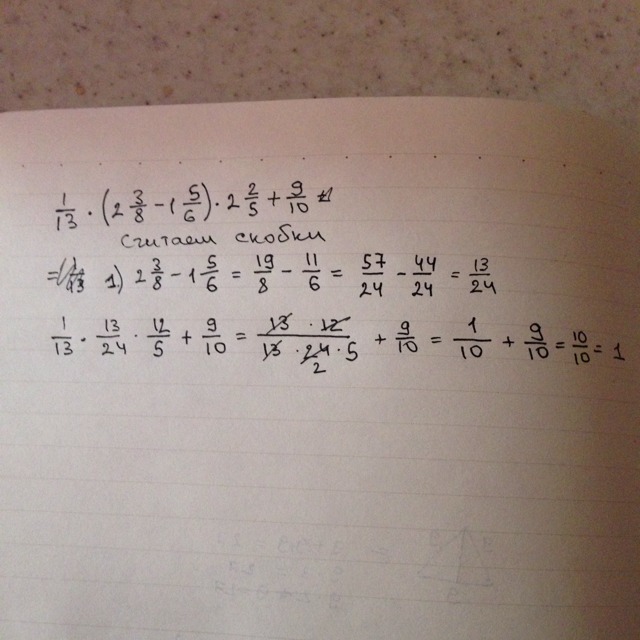 1/13 · (2 3/8 − 1 5/6) · 2 2/5 + 9/10
считаем скобки
= 1) 2 3/8 − 1 5/6 = 19/8 − 11/6 = 57/24 − 44/24 = 13/24
1/13 · 13/24 · 12/5 + 9/10 = 13 · 12 / 13 · 24 · 5 2 + 9/10 = 1/10 + 9/10 = 10/10 = 1